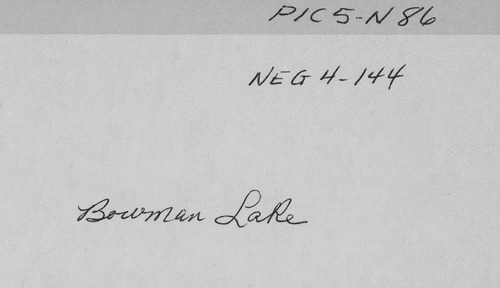 PIC5-N86
NEG 4-144
Bowman Lake